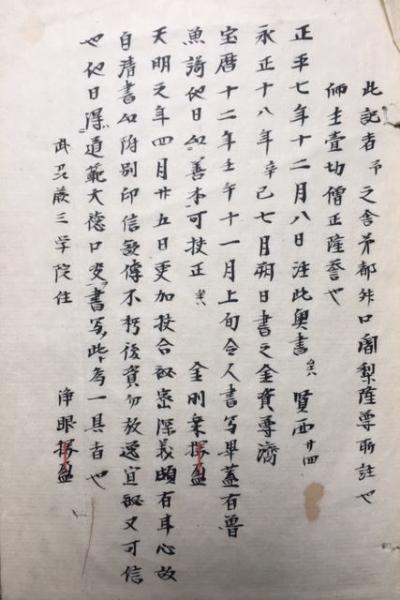 此記者予之舎弟都外口闍梨隆尊所註也
師主壹切僧正隆誉也
正平七年十二月八日注此奥書 賢西廿四
永正十八年辛已七月朔日書之金資専濟
宝暦十二年壬午十一月上旬令人書写畢蓋有曽
魚漪他日以善本可挍正 金剛棄
天明元年四月廿五日更加挍合秘密深義頗有耳心故
自清書以附別印信並傳不朽後資勿放逸宜秘又可信
也他日得道範大徳口变書写此為一具者也
武刕蕨三学院住 浄眼